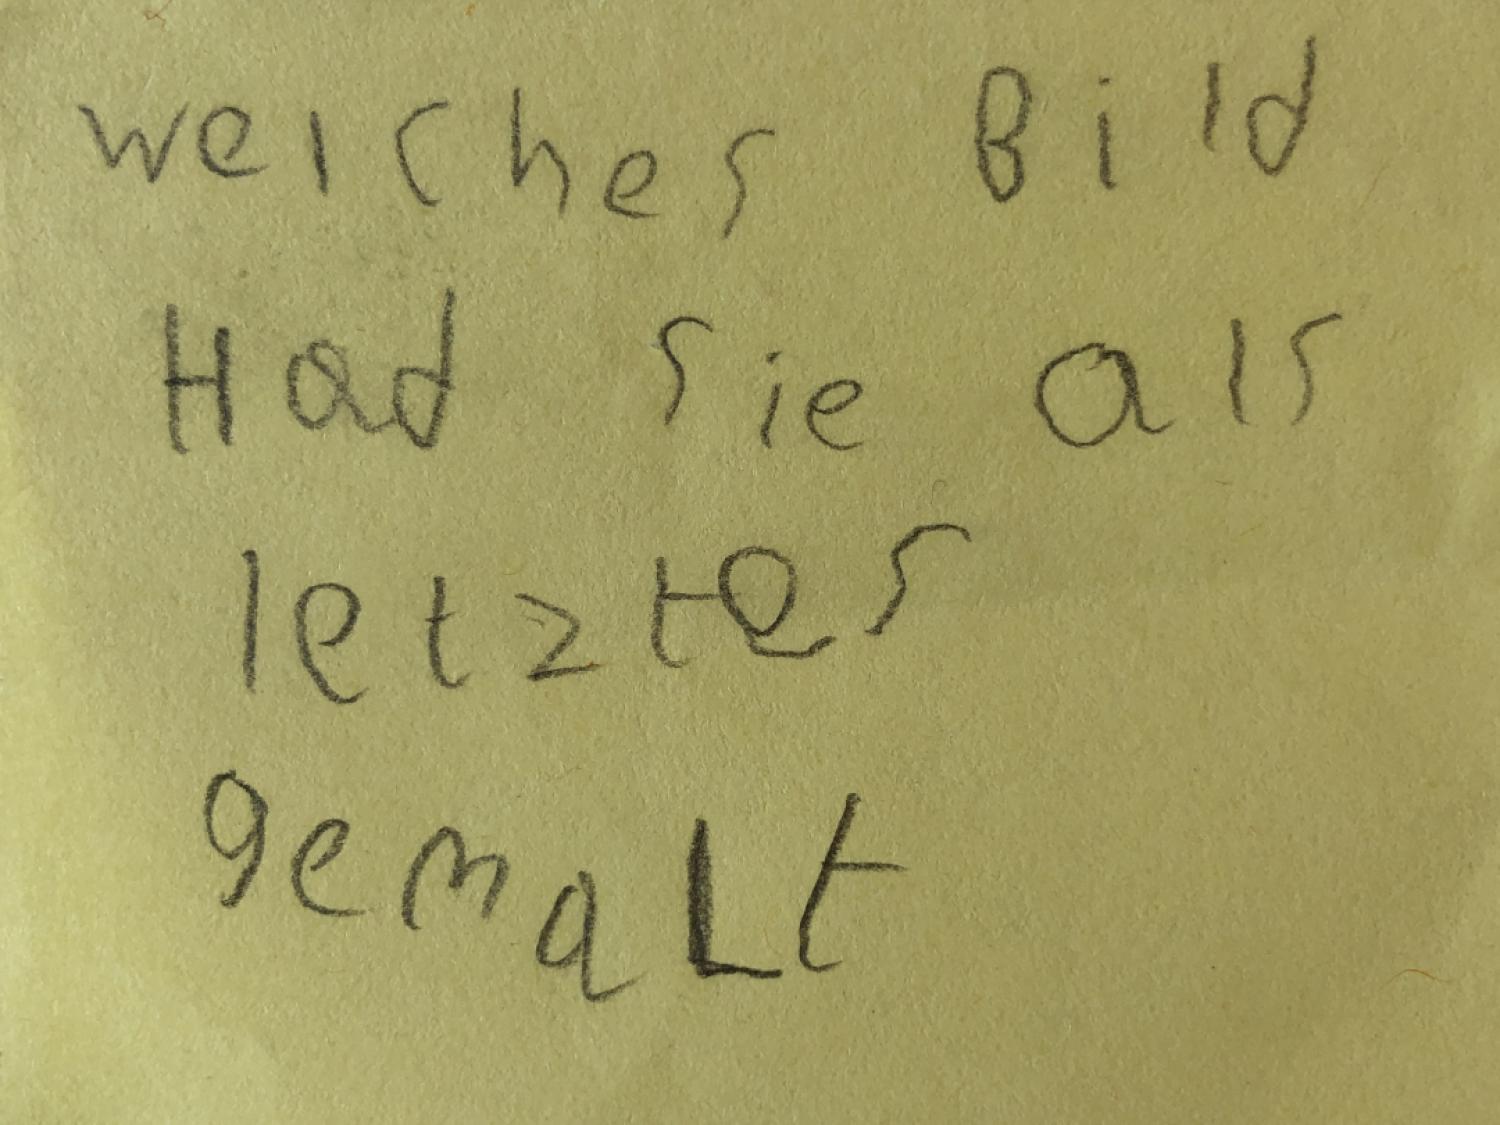 welches Bild
Had sie als
letztes
gemalt